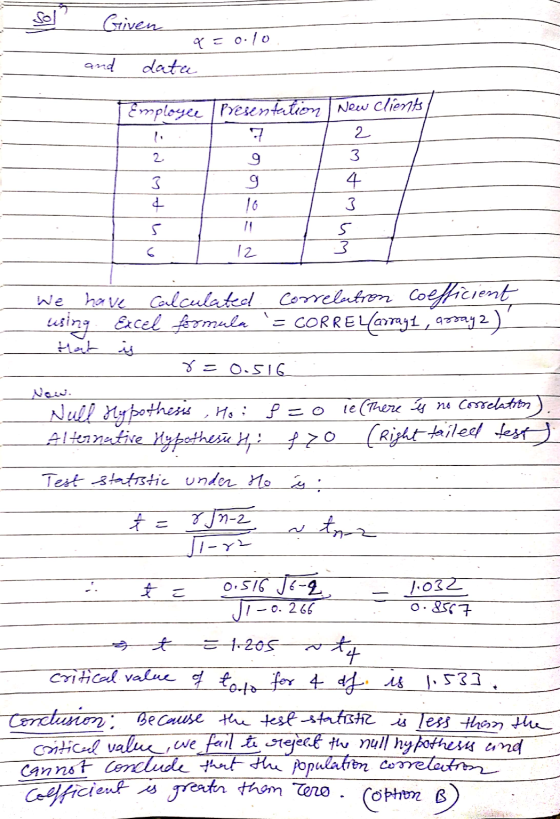 Solⁿ Given
α = 0.10
and data
Employee Presentation New Clients
1. 7 2
2 9 3
3 9 4
4 10 3
5 11 5
6 12 3
We have calculated Correlation Coefficient
using Excel formula '= CORREL(array1, array2)'
that is
r = 0.516
Now.
Null Hypothesis, H₀: ρ = 0 ie (There is no Correlation).
Alternative Hypothesis H₁: ρ > 0 (Right tailed test)
Test statistic under H₀ is:
t = r√n-2 / √1-r² ~ tn-2
∴ t = 0.516 √6-2 / √1-0.266 = 1.032 / 0.8567
⇒ t = 1.205 ~ t4
Critical value of t0.10 for 4 df. is 1.533.
Conclusion: Because the test statistic is less than the
critical value, we fail to reject the null hypothesis and
cannot conclude that the population correlation
Coefficient is greater than zero. (option B)